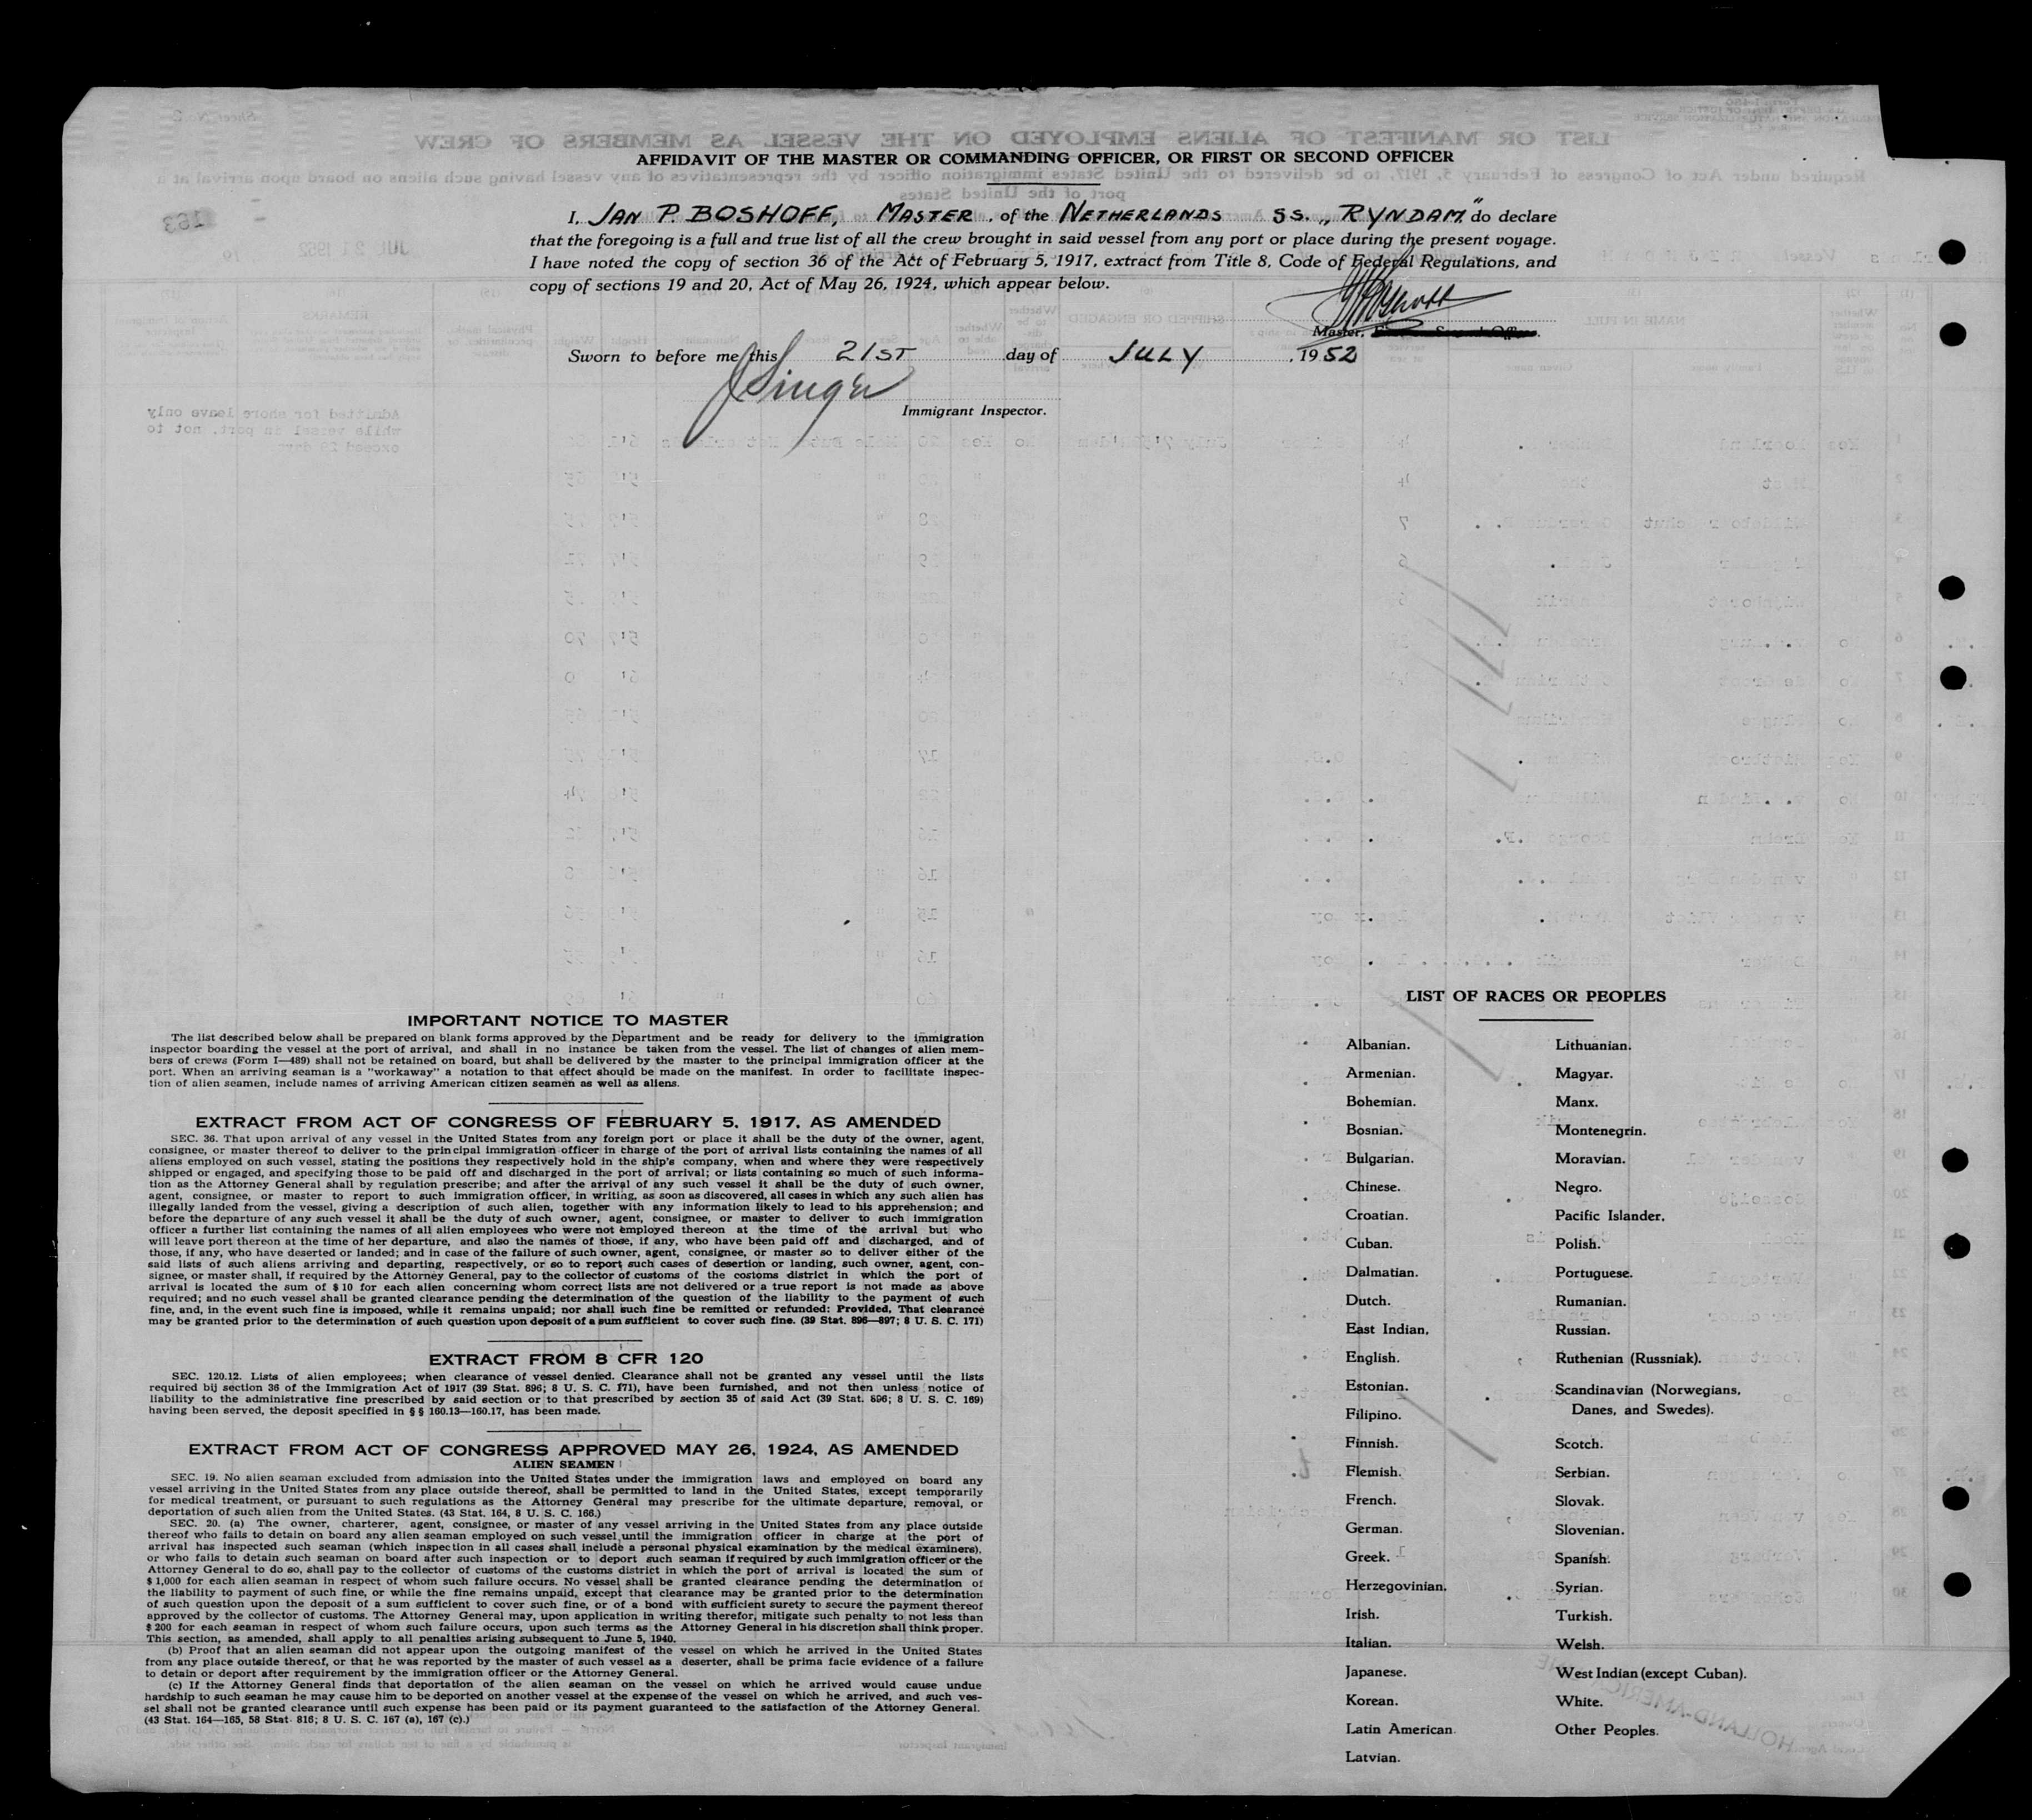 AFFIDAVIT OF THE MASTER OR COMMANDING OFFICER, OR FIRST OR SECOND OFFICER
I, JAN P. BOSHOFF, MASTER, of the NETHERLANDS SS. „RYNDAM" do declare
that the foregoing is a full and true list of all the crew brought in said vessel from any port or place during the present voyage.
I have noted the copy of section 36 of the Act of February 5, 1917, extract from Title 8, Code of Federal Regulations, and
copy of sections 19 and 20, Act of May 26, 1924, which appear below.
Master, First or Second Officer.
Sworn to before me this 21ST day of JULY, 1952
J Singer
Immigrant Inspector.
IMPORTANT NOTICE TO MASTER
The list described below shall be prepared on blank forms approved by the Department and be ready for delivery to the immigration
inspector boarding the vessel at the port of arrival, and shall in no instance be taken from the vessel. The list of changes of alien mem-
bers of crews (Form I—489) shall not be retained on board, but shall be delivered by the master to the principal immigration officer at the
port. When an arriving seaman is a "workaway" a notation to that effect should be made on the manifest. In order to facilitate inspec-
tion of alien seamen, include names of arriving American citizen seamen as well as aliens.
EXTRACT FROM ACT OF CONGRESS OF FEBRUARY 5, 1917, AS AMENDED
SEC. 36. That upon arrival of any vessel in the United States from any foreign port or place it shall be the duty of the owner, agent,
consignee, or master thereof to deliver to the principal immigration officer in charge of the port of arrival lists containing the names of all
aliens employed on such vessel, stating the positions they respectively hold in the ship's company, when and where they were respectively
shipped or engaged, and specifying those to be paid off and discharged in the port of arrival; or lists containing so much of such informa-
tion as the Attorney General shall by regulation prescribe; and after the arrival of any such vessel it shall be the duty of such owner,
agent, consignee, or master to report to such immigration officer, in writing, as soon as discovered, all cases in which any such alien has
illegally landed from the vessel, giving a description of such alien, together with any information likely to lead to his apprehension; and
before the departure of any such vessel it shall be the duty of such owner, agent, consignee, or master to deliver to such immigration
officer a further list containing the names of all alien employees who were not employed thereon at the time of the arrival but who
will leave port thereon at the time of her departure, and also the names of those, if any, who have been paid off and discharged, and of
those, if any, who have deserted or landed; and in case of the failure of such owner, agent, consignee, or master so to deliver either of the
said lists of such aliens arriving and departing, respectively, or so to report such cases of desertion or landing, such owner, agent, con-
signee, or master shall, if required by the Attorney General, pay to the collector of customs of the costoms district in which the port of
arrival is located the sum of $10 for each alien concerning whom correct lists are not delivered or a true report is not made as above
required; and no such vessel shall be granted clearance pending the determination of the question of the liability to the payment of such
fine, and, in the event such fine is imposed, while it remains unpaid; nor shall such fine be remitted or refunded: Provided, That clearance
may be granted prior to the determination of such question upon deposit of a sum sufficient to cover such fine. (39 Stat. 896—897; 8 U. S. C. 171)
EXTRACT FROM 8 CFR 120
SEC. 120.12. Lists of alien employees; when clearance of vessel denied. Clearance shall not be granted any vessel until the lists
required bij section 36 of the Immigration Act of 1917 (39 Stat. 896; 8 U. S. C. 171), have been furnished, and not then unless notice of
liability to the administrative fine prescribed by said section or to that prescribed by section 35 of said Act (39 Stat. 896; 8 U. S. C. 169)
having been served, the deposit specified in § § 160.13—160.17, has been made.
EXTRACT FROM ACT OF CONGRESS APPROVED MAY 26, 1924, AS AMENDED
ALIEN SEAMEN
SEC. 19. No alien seaman excluded from admission into the United States under the immigration laws and employed on board any
vessel arriving in the United States from any place outside thereof, shall be permitted to land in the United States, except temporarily
for medical treatment, or pursuant to such regulations as the Attorney General may prescribe for the ultimate departure, removal, or
deportation of such alien from the United States. (43 Stat. 164, 8 U. S. C. 166.)
SEC. 20. (a) The owner, charterer, agent, consignee, or master of any vessel arriving in the United States from any place outside
thereof who fails to detain on board any alien seaman employed on such vessel until the immigration officer in charge at the port of
arrival has inspected such seaman (which inspection in all cases shall include a personal physical examination by the medical examiners),
or who fails to detain such seaman on board after such inspection or to deport such seaman if required by such immigration officer or the
Attorney General to do so, shall pay to the collector of customs of the customs district in which the port of arrival is located the sum of
$1,000 for each alien seaman in respect of whom such failure occurs. No vessel shall be granted clearance pending the determination of
the liability to payment of such fine, or while the fine remains unpaid, except that clearance may be granted prior to the determination
of such question upon the deposit of a sum sufficient to cover such fine, or of a bond with sufficient surety to secure the payment thereof
approved by the collector of customs. The Attorney General may, upon application in writing therefor, mitigate such penalty to not less than
$200 for each seaman in respect of whom such failure occurs, upon such terms as the Attorney General in his discretion shall think proper.
This section, as amended, shall apply to all penalties arising subsequent to June 5, 1940.
(b) Proof that an alien seaman did not appear upon the outgoing manifest of the vessel on which he arrived in the United States
from any place outside thereof, or that he was reported by the master of such vessel as a deserter, shall be prima facie evidence of a failure
to detain or deport after requirement by the immigration officer or the Attorney General.
(c) If the Attorney General finds that deportation of the alien seaman on the vessel on which he arrived would cause undue
hardship to such seaman he may cause him to be deported on another vessel at the expense of the vessel on which he arrived, and such ves-
sel shall not be granted clearance until such expense has been paid or its payment guaranteed to the satisfaction of the Attorney General.
(43 Stat. 164—165, 58 Stat. 816; 8 U. S. C. 167 (a), 167 (c).)
LIST OF RACES OR PEOPLES
Albanian.
Armenian.
Bohemian.
Bosnian.
Bulgarian.
Chinese.
Croatian.
Cuban.
Dalmatian.
Dutch.
East Indian.
English.
Estonian.
Filipino.
Finnish.
Flemish.
French.
German.
Greek.
Herzegovinian.
Irish.
Italian.
Japanese.
Korean.
Latin American.
Latvian.
Lithuanian.
Magyar.
Manx.
Montenegrin.
Moravian.
Negro.
Pacific Islander.
Polish.
Portuguese.
Rumanian.
Russian.
Ruthenian (Russniak).
Scandinavian (Norwegians,
Danes, and Swedes).
Scotch.
Serbian.
Slovak.
Slovenian.
Spanish.
Syrian.
Turkish.
Welsh.
West Indian (except Cuban).
White.
Other Peoples.